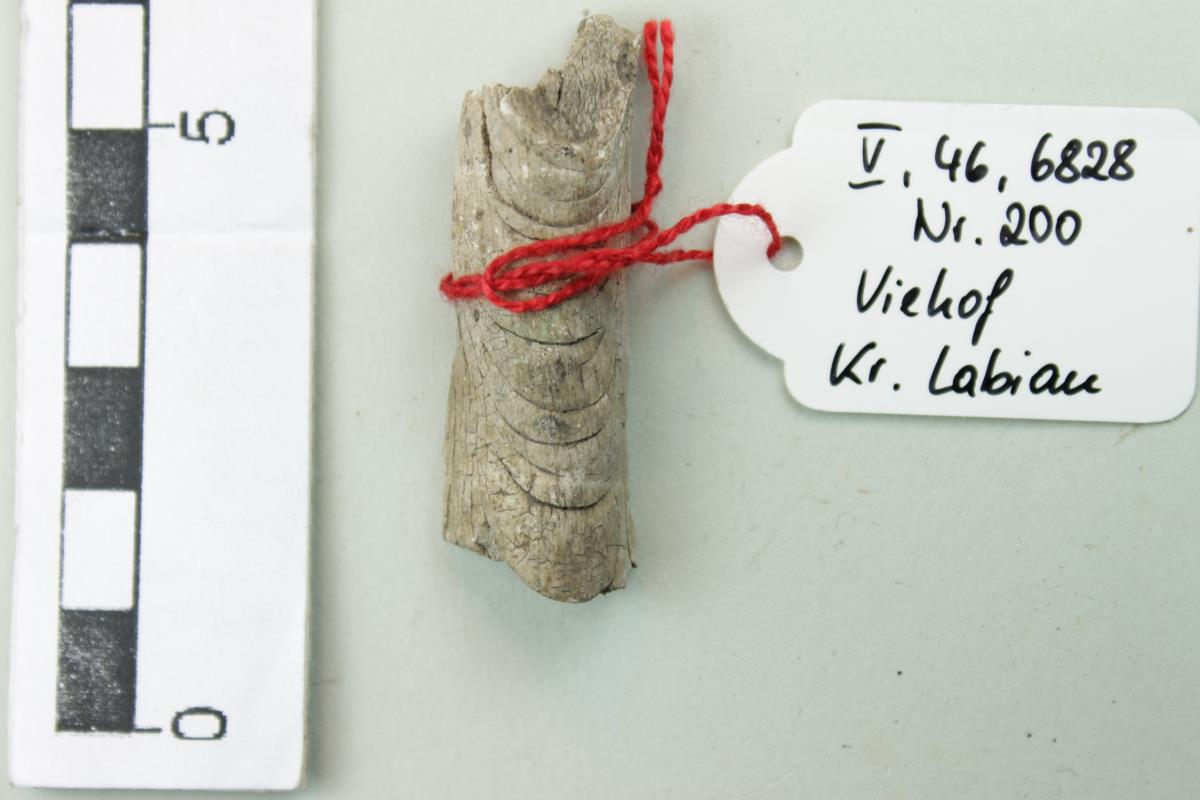 5
0
V, 46, 6828
Nr. 200
Viehof
Kr. Labiau